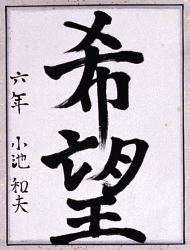 希望
六年 小池和夫